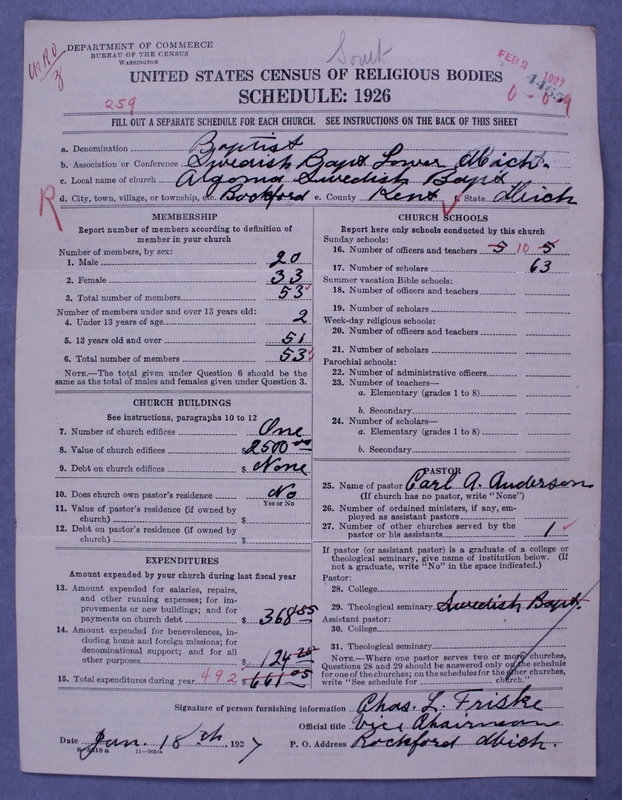 DEPARTMENT OF COMMERCE
BUREAU OF THE CENSUS
WASHINGTON
FEB 2 1927
UNITED STATES CENSUS OF RELIGIOUS BODIES
SCHEDULE: 1926
259
FILL OUT A SEPARATE SCHEDULE FOR EACH CHURCH. SEE INSTRUCTIONS ON THE BACK OF THIS SHEET
a. Denomination Baptist
b. Association or Conference Swedish Bapt Lower Mich.
c. Local name of church Algoma Swedish Bapt
d. City, town, village, or township, etc. Rockford e. County Kent f. State Mich
R
MEMBERSHIP
Report number of members according to definition of
member in your church
Number of members, by sex:
1. Male 20
2. Female 33
3. Total number of members 53
Number of members under and over 13 years old:
4. Under 13 years of age 2
5. 13 years old and over 51
6. Total number of members 53
NOTE.—The total given under Question 6 should be the
same as the total of males and females given under Question 3.
CHURCH BUILDINGS
See instructions, paragraphs 10 to 12
7. Number of church edifices One
8. Value of church edifices $2500 00
9. Debt on church edifices $ None
10. Does church own pastor's residence No
Yes or No
11. Value of pastor's residence (if owned by
church) $
12. Debt on pastor's residence (if owned by
church) $
EXPENDITURES
Amount expended by your church during last fiscal year
13. Amount expended for salaries, repairs,
and other running expenses; for im-
provements or new buildings; and for
payments on church debt $ 368.55
14. Amount expended for benevolences, in-
cluding home and foreign missions; for
denominational support; and for all
other purposes $ 124.25
15. Total expenditures during year 492 $ 661.05
CHURCH SCHOOLS
Report here only schools conducted by this church
Sunday schools:
16. Number of officers and teachers 5 10 5
17. Number of scholars 63
Summer vacation Bible schools:
18. Number of officers and teachers
19. Number of scholars
Week-day religious schools:
20. Number of officers and teachers
21. Number of scholars
Parochial schools:
22. Number of administrative officers
23. Number of teachers—
a. Elementary (grades 1 to 8)
b. Secondary
24. Number of scholars—
a. Elementary (grades 1 to 8)
b. Secondary
PASTOR
25. Name of pastor Carl A. Anderson
(If church has no pastor, write "None")
26. Number of ordained ministers, if any, em-
ployed as assistant pastors
27. Number of other churches served by the
pastor or his assistants 1
If pastor (or assistant pastor) is a graduate of a college or
theological seminary, give name of institution below. (If
not a graduate, write "No" in the space indicated.)
Pastor:
28. College
29. Theological seminary Swedish Bapt.
Assistant pastor:
30. College
31. Theological seminary
NOTE.—Where one pastor serves two or more churches,
Questions 28 and 29 should be answered only on the schedule
for one of the churches; on the schedules for the other churches,
write "See schedule for church."
Signature of person furnishing information Chas. L. Friske
Official title Vice Chairman
Date Jan. 18th, 1927 P. O. Address Rockford Mich.